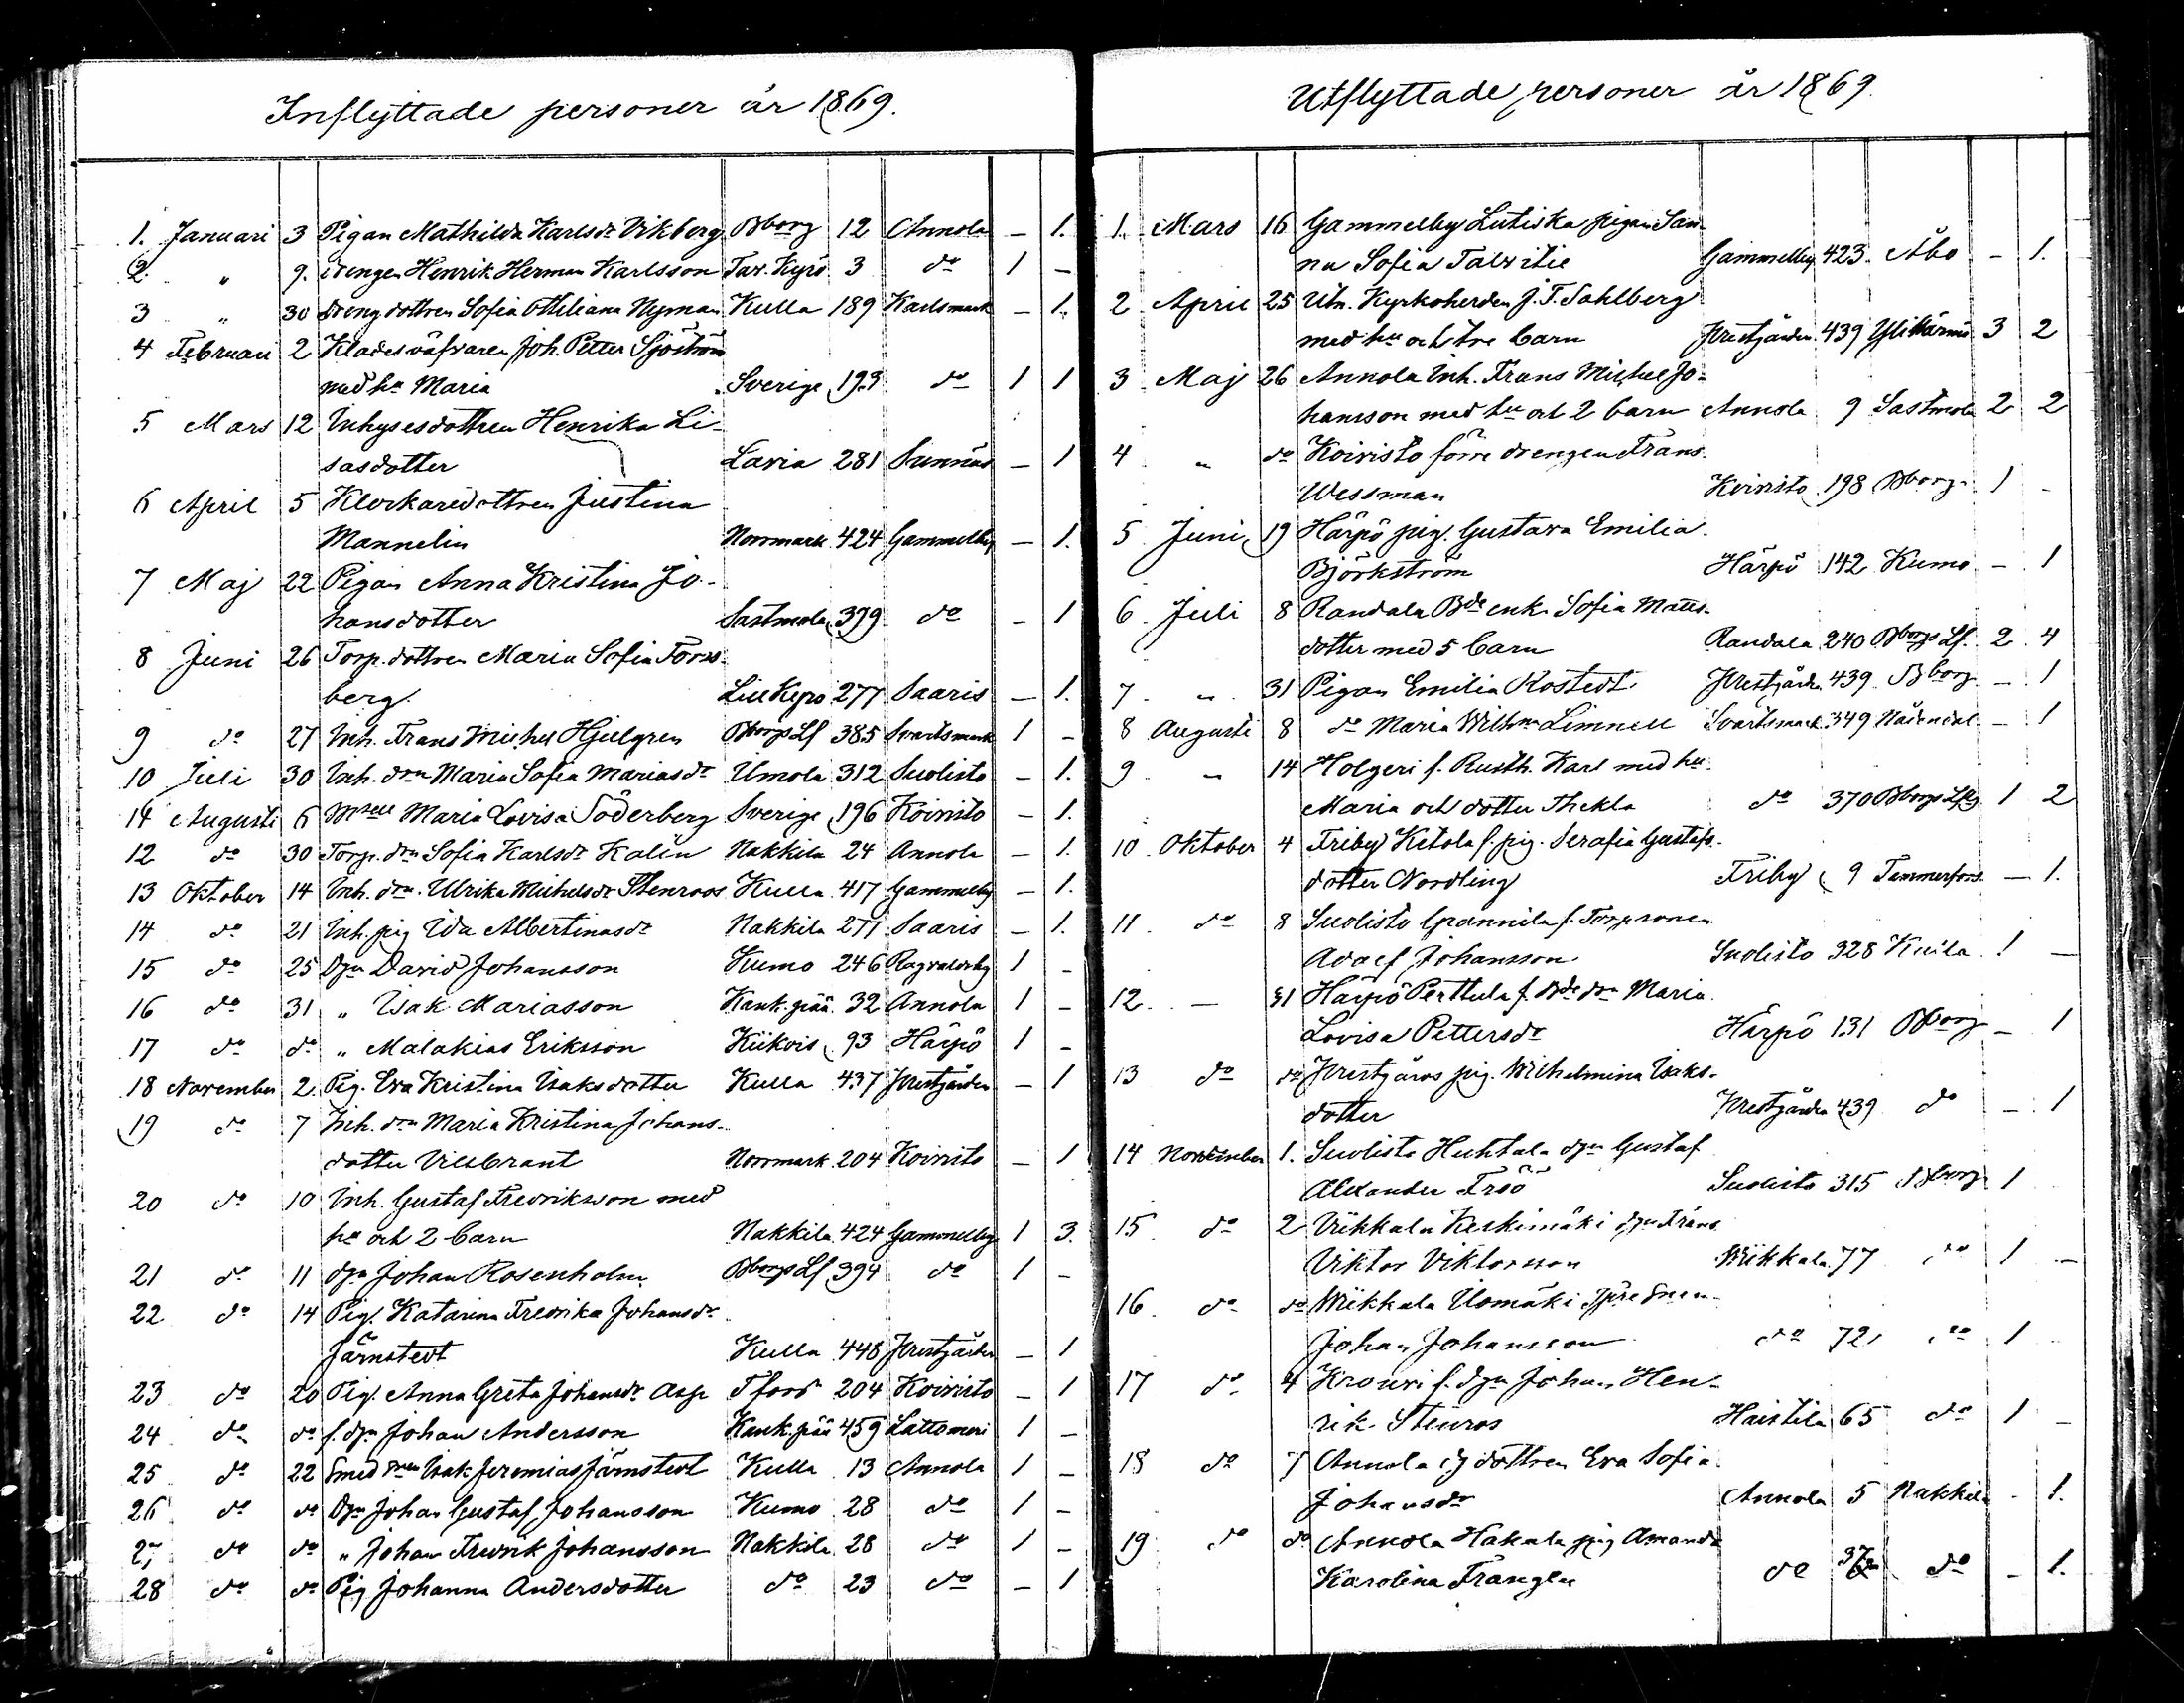 Inflyttade personer år 1869.
1. Januari 3 Pigan Mathilda Karlsdr Vikberg Bborg 12 Annola — 1.
2. " 9. drengen Henrik Herman Karlsson Tav. Kyrö 3 do 1 —
3 " 30 drengdottren Sofia Othiliana Nyman Kulla 189 Karlsmark — 1.
4 Februari 2 Klädesväfvaren Joh. Petter Sjöström
med hu Maria Sverige 193 do 1 1
5 Mars 12 Inhysesdottren Henrika Li-
sasdotter Lavia 281 Sunnäs — 1
6 April 5 Klockaredottren Justina
Mannelin Norrmark 424 Gammelby — 1.
7 Maj 22 Pigan Anna Kristina Jo-
hansdotter Sastmola 379 do — 1
8 Juni 26 Torp. dottren Maria Sofia Forss-
berg. 277 Saaris — 1.
9 do 27 Inh. Frans Michel Hjelgren Bborgs Lf 385 Svartsmark 1 —
10 Juli 30 Inh. drn Maria Sofia Mariasdr Ulmola 312 Suolisto — 1.
14 Augusti 6 Mselle Maria Lovisa Söderberg Sverige 196 Koivisto — 1.
12 do 30 Torp. drn Sofia Karlsdr Kalin Nakkila 24 Annola — 1.
13 Oktober 14 Inh. drn. Ulrika Michelsdr Stenroos Kulla 417 Gammelby — 1.
14 do 21 Inh. pig Ida Albertinasdr Nakkila 277 Saaris — 1.
15 do 25 Dgn David Johansson Kumo 246 Ragvaldsby 1 —
16 do 31 " Isak Mariasson Kank.pää 32 Annola 1 —
17 do do " Malakias Eriksson Kiikois 93 Härpö 1 —
18 November 2. Pig. Eva Kristina Isaksdotter Kulla 437 Prestgården — 1
19 do 7 Inh. drn Maria Kristina Johans-
dotter Villbrant Norrmark 204 Koivisto — 1
20 do 10 Inh. Gustaf Fredriksson med
hu och 2 barn Nakkila 424 Gammelby 1 3.
21 do 11 dgn Johan Rosenholm Bborgs Lf 394 do 1 —
22 do 14 Pig. Katarina Fredrika Johansdr
Järnstedt Kulla 448 Prestgården — 1
23 do 20 Pig. Anna Greta Johansdr Asp Tfors 204 Koivisto — 1
24 do do f. dgn Johan Andersson Kank.pää 459 Lattomeri 1 —
25 do 22 Smed Isak Jeremias Järnstedt Kulla 13 Annola 1 —
26 do do Dgn Johan Gustaf Johansson Kumo 28 do 1 —
27 do do " Johan Fredrik Johansson Nakkila 28 do 1 —
28 do do Pig Johanna Andersdotter do 23 do — 1
Utflyttade personer år 1869.
1. Mars 16 Gammelby Lutiska pigan San-
na Sofia Talvitie Gammelby 423 Åbo — 1.
2 April 25 Utn. Kyrkoherden J. F. Sahlberg
med hu och tre barn Prestgården 439 Ylikärmä 3 2
3 Maj 26 Annola Inh. Frans Michel Jo-
hansson med hu och 2 barn Annola 9 Sastmola 2 2
4 " do Koivisto förre drengen Frans
Wessman Koivisto 198 Bborg 1 -
5 Juni 19 Härpö pig. Gustava Emilia
Björkström Härpö 142 Kumo — 1
6 Juli 8 Randala Bde enk. Sofia Matts-
dotter med 5 barn Randala 240 Bborgs Lf. 2 4
7 " 31 Pigan Emilia Rostedt Prestgården 439 Bborg — 1
8 Augusti 8 do Maria Wilhna Limnell Svartsmark 349 Nådendal — 1
9 " 14 Holgeri f. Rusth. Karl med hu
Maria och dotter Thekla do 370 Bborgs Lfg 1 2
10 Oktober 4 Friby Ketola f. pig. Serafia Gustafs-
dotter Nordling Friby 9 Tammerfors — 1.
11 do 8 Suolisto Grannila f. Torpsonen
Adolf Johansson Suolisto 328 Kulla 1 —
12 — 31 Härpö Perttula f. Bde drn Maria
Lovisa Pettersdr Härpö 131 Bborg — 1
13 do do Prestgårds pig. Wilhelmina Isaks-
dotter Prestgården 439 do — 1
14 November 1. Suolisto Huhtala dgn Gustaf
Alexander Fröö Suolisto 315 Bborg 1
15 do 2 Viikkala Keskimäki dgn Frans
Viktor Viktorsson Wiikkala 77 do 1 —
16 do do Wiikkala Ilomäki
Johan Johansson do 72 do 1
17 do 4 Krouvi f. dgn Johan Hen-
rik Stenros Haistila 65 do 1 —
18 do 7 Annola dottren Eva Sofia
Johansdr Annola 5 Nakkila - 1.
19 do do Annola Hakala pig Amanda
Karolina Franglu do 37 do — 1.